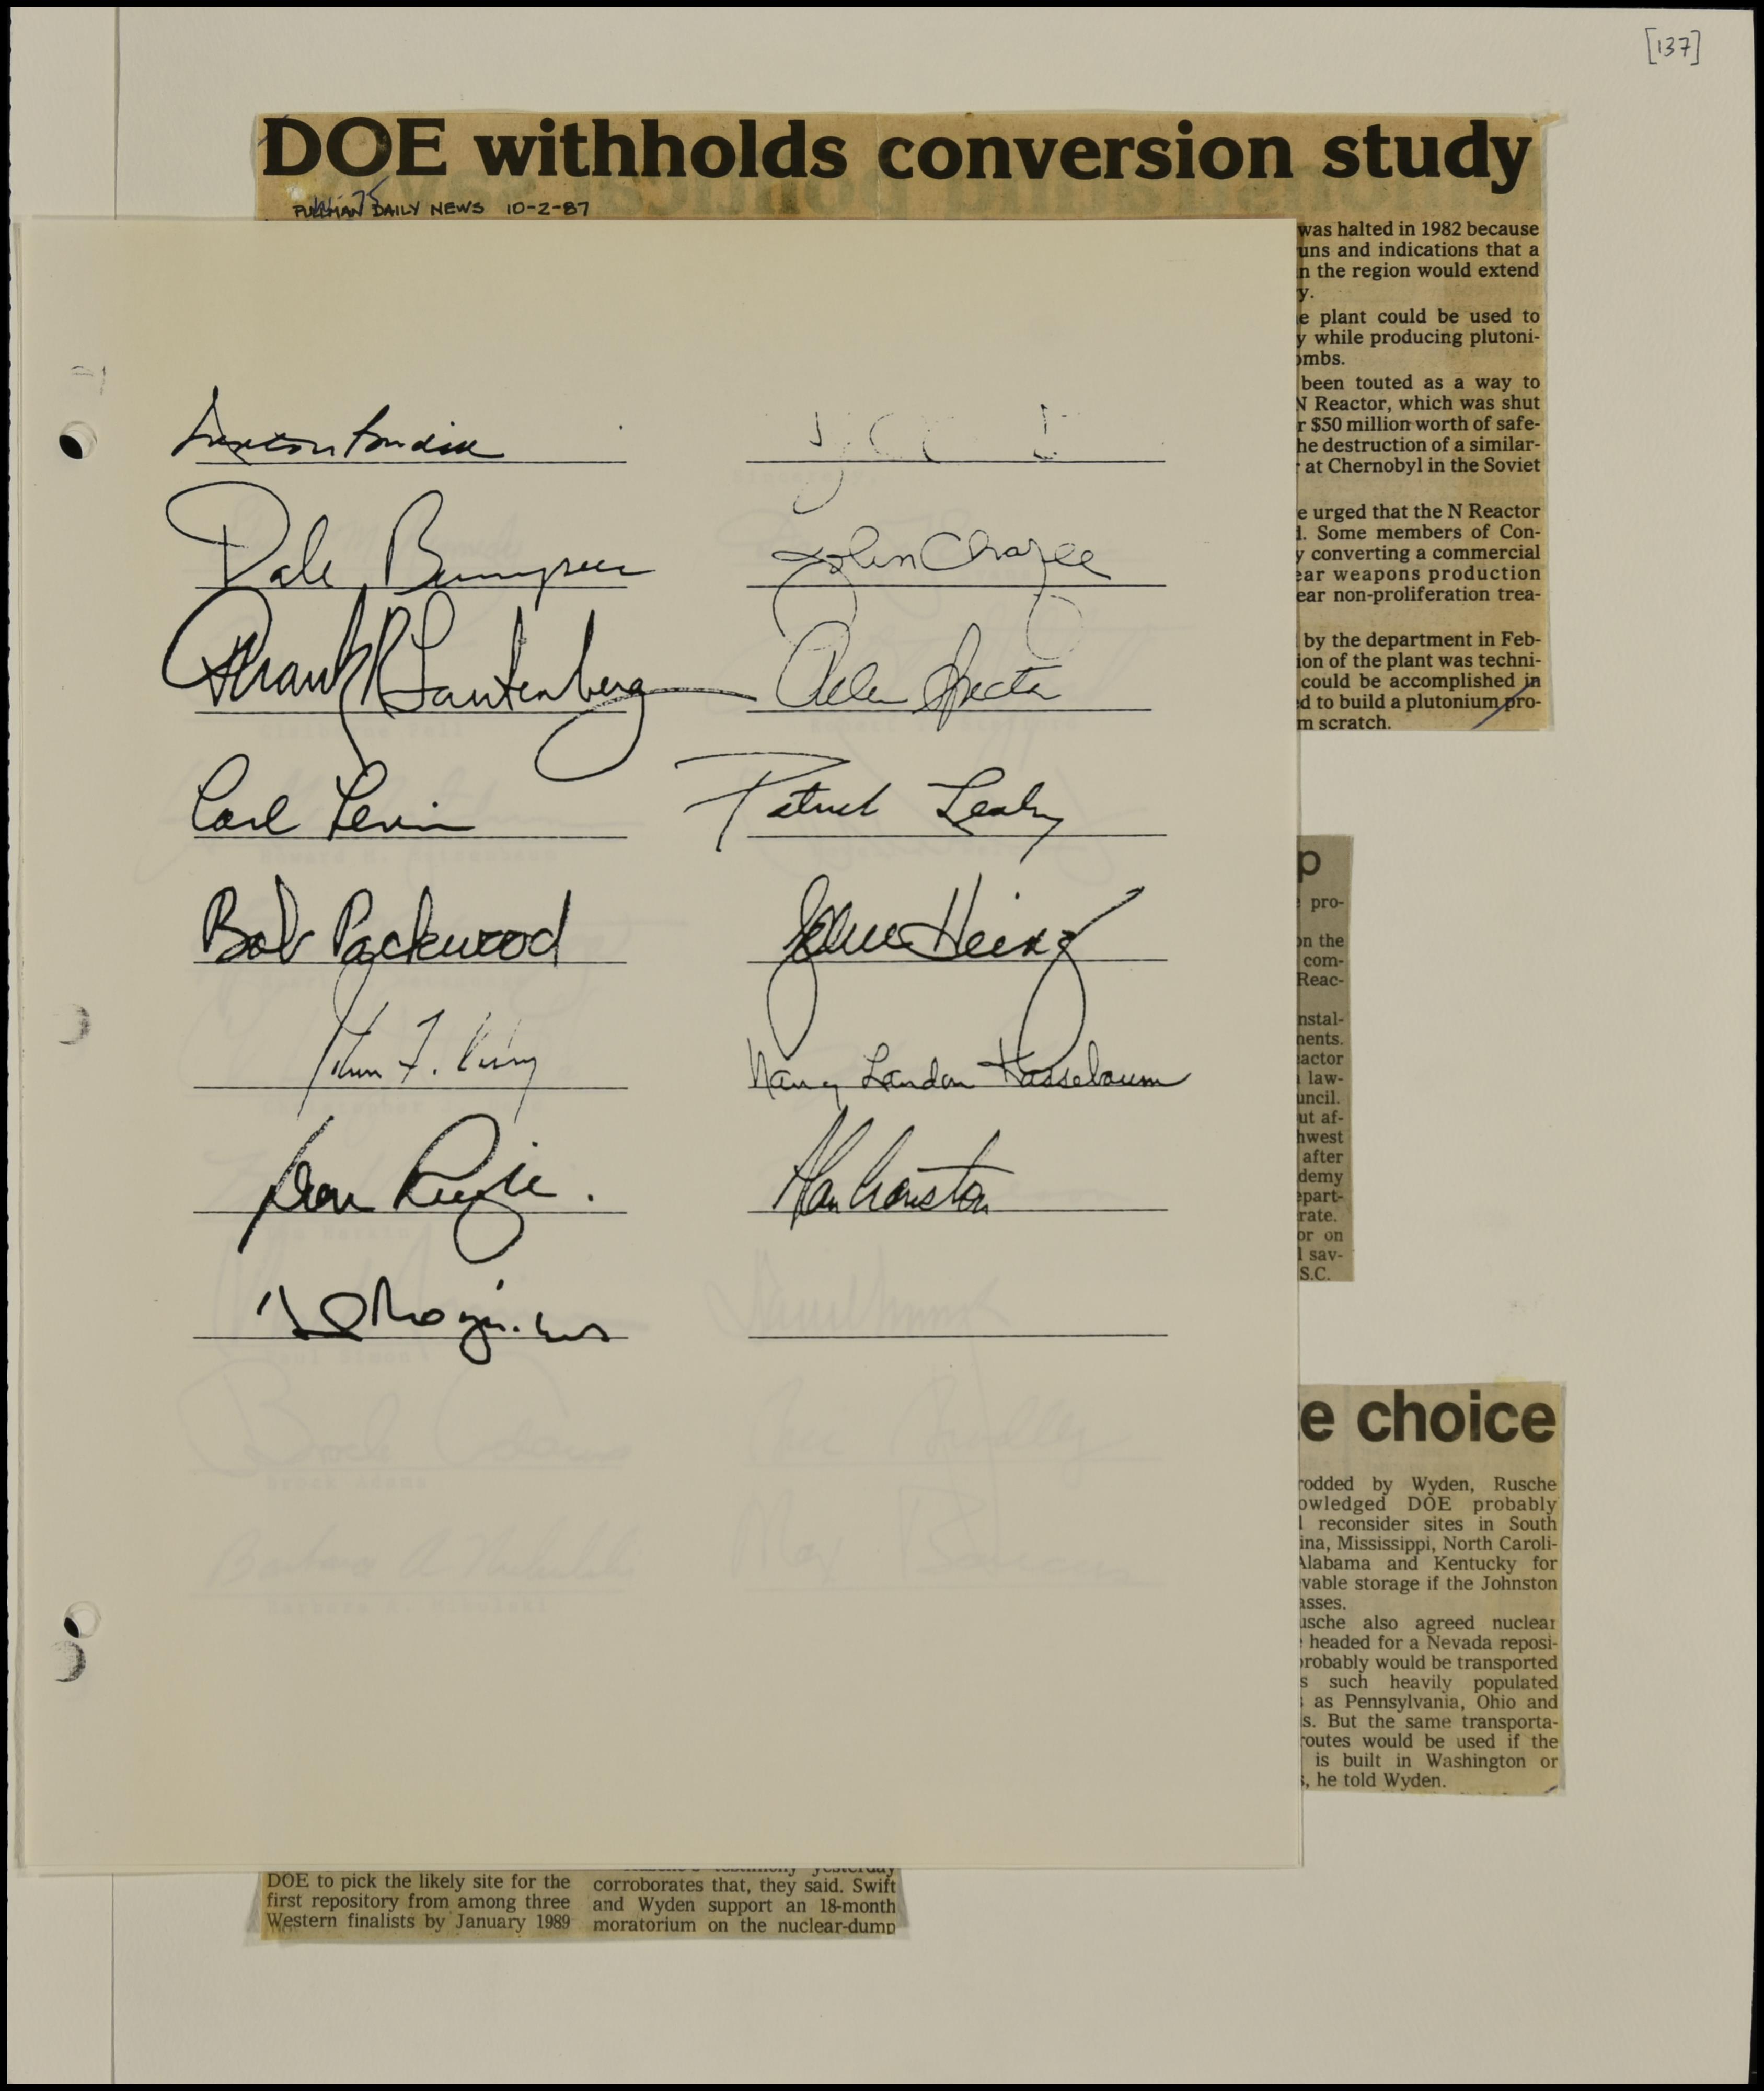 [137]
DOE withholds conversion study
PULLMAN DAILY NEWS 10-2-87
was halted in 1982 because
uns and indications that a
n the region would extend
y.
e plant could be used to
y while producing plutoni-
ombs.
been touted as a way to
N Reactor, which was shut
r $50 million worth of safe-
he destruction of a similar-
at Chernobyl in the Soviet
e urged that the N Reactor
d. Some members of Con-
y converting a commercial
ear weapons production
ear non-proliferation trea-
by the department in Feb-
ion of the plant was techni-
could be accomplished in
ed to build a plutonium pro-
m scratch.
Dale Bumpers
John Chafee
Frank R Lautenberg
Arlen Specter
Carl Levin
Patrick Leahy
Bob Packwood
John Heinz
John F. Kerry
Nancy Landon Kassebaum
Don Riegle
Alan Cranston
p
pro-
on the
com-
Reac-
nstal-
nents.
actor
law-
uncil.
ut af-
hwest
after
demy
epart-
rate.
or on
l sav-
S.C.
e choice
rodded by Wyden, Rusche
owledged DOE probably
l reconsider sites in South
ina, Mississippi, North Caroli-
Alabama and Kentucky for
vable storage if the Johnston
asses.
usche also agreed nuclear
headed for a Nevada reposi-
probably would be transported
s such heavily populated
as Pennsylvania, Ohio and
s. But the same transporta-
routes would be used if the
is built in Washington or
s, he told Wyden.
DOE to pick the likely site for the
first repository from among three
Western finalists by January 1989
testimony yesterday
corroborates that, they said. Swift
and Wyden support an 18-month
moratorium on the nuclear-dump